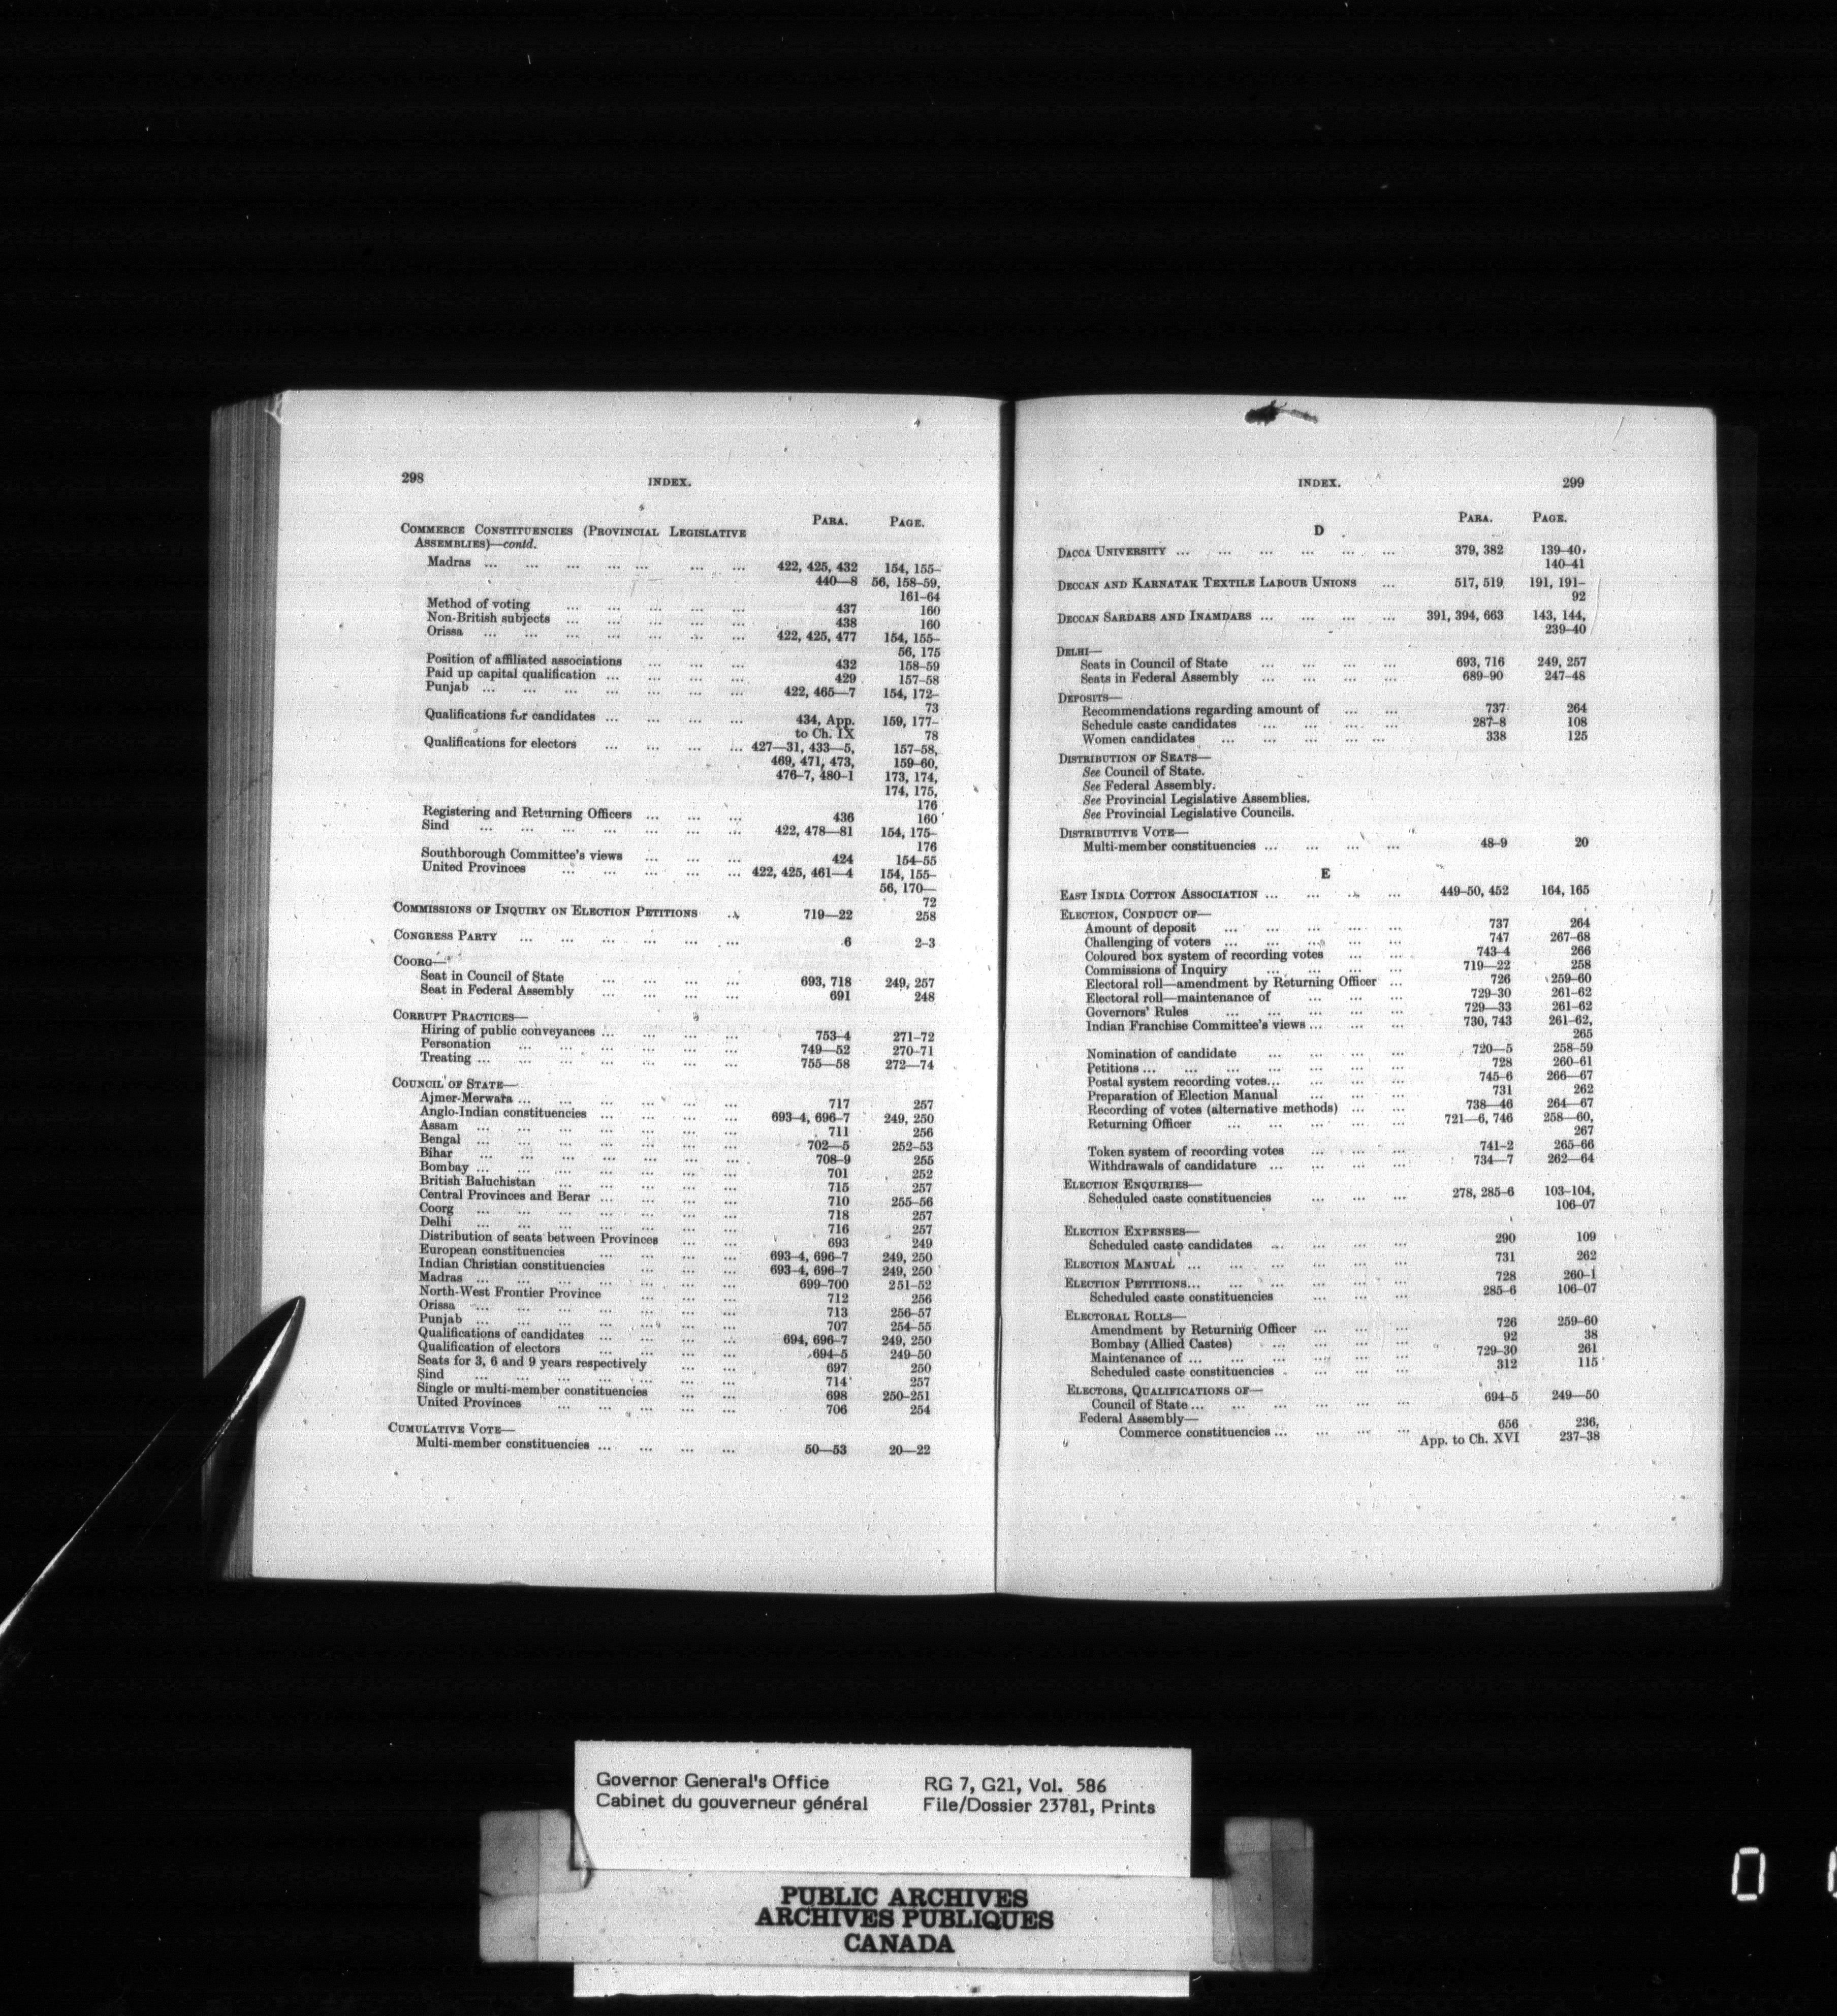 298 INDEX.
PARA. PAGE.
COMMERCE CONSTITUENCIES (PROVINCIAL LEGISLATIVE
ASSEMBLIES)—contd.
Madras ... ... ... ... ... ... ... 422, 425, 432 154, 155-
440—8 56, 158-59,
161-64
Method of voting ... ... ... ... ... 437 160
Non-British subjects ... ... ... ... ... 438 160
Orissa ... ... ... ... ... ... ... 422, 425, 477 154, 155-
56, 175
Position of affiliated associations ... ... ... 432 158-59
Paid up capital qualification ... ... ... ... 429 157-58
Punjab ... ... ... ... ... ... ... 422, 465—7 154, 172-
73
Qualifications for candidates ... ... ... ... 434, App. 159, 177-
to Ch. IX 78
Qualifications for electors ... ... ... ... 427—31, 433—5, 157-58,
469, 471, 473, 159-60,
476-7, 480-1 173, 174,
174, 175,
176
Registering and Returning Officers ... ... ... 436 160
Sind ... ... ... ... ... ... ... 422, 478—81 154, 175-
176
Southborough Committee's views ... ... ... 424 154-55
United Provinces ... ... ... ... ... 422, 425, 461—4 154, 155-
56, 170—
72
COMMISSIONS OF INQUIRY ON ELECTION PETITIONS ... 719—22 258
CONGRESS PARTY ... ... ... ... ... ... 6 2-3
COORG—
Seat in Council of State ... ... ... ... 693, 718 249, 257
Seat in Federal Assembly ... ... ... ... 691 248
CORRUPT PRACTICES—
Hiring of public conveyances ... ... ... ... 753-4 271-72
Personation ... ... ... ... ... ... 749—52 270-71
Treating ... ... ... ... ... ... ... 755—58 272—74
COUNCIL OF STATE—
Ajmer-Merwara ... ... ... ... ... ... 717 257
Anglo-Indian constituencies ... ... ... ... 693-4, 696-7 249, 250
Assam ... ... ... ... ... ... ... 711 256
Bengal ... ... ... ... ... ... ... 702—5 252-53
Bihar ... ... ... ... ... ... ... 708-9 255
Bombay ... ... ... ... ... ... ... 701 252
British Baluchistan ... ... ... ... ... 715 257
Central Provinces and Berar ... ... ... ... 710 255-56
Coorg ... ... ... ... ... ... ... 718 257
Delhi ... ... ... ... ... ... ... 716 257
Distribution of seats between Provinces ... ... 693 249
European constituencies ... ... ... ... 693-4, 696-7 249, 250
Indian Christian constituencies ... ... ... 693-4, 696-7 249, 250
Madras ... ... ... ... ... ... ... 699-700 251-52
North-West Frontier Province ... ... ... 712 256
Orissa ... ... ... ... ... ... ... 713 256-57
Punjab ... ... ... ... ... ... ... 707 254-55
Qualifications of candidates ... ... ... ... 694, 696-7 249, 250
Qualification of electors ... ... ... ... 694-5 249-50
Seats for 3, 6 and 9 years respectively ... ... 697 250
Sind ... ... ... ... ... ... ... 714 257
Single or multi-member constituencies ... ... 698 250-251
United Provinces ... ... ... ... ... 706 254
CUMULATIVE VOTE—
Multi-member constituencies ... ... ... ... 50—53 20—22
INDEX. 299
PARA. PAGE.
D
DACCA UNIVERSITY ... ... ... ... ... ... 379, 382 139-40,
140-41
DECCAN AND KARNATAK TEXTILE LABOUR UNIONS ... 517, 519 191, 191-
92
DECCAN SARDARS AND INAMDARS ... ... ... ... 391, 394, 663 143, 144,
239-40
DELHI—
Seats in Council of State ... ... ... ... 693, 716 249, 257
Seats in Federal Assembly ... ... ... ... 689-90 247-48
DEPOSITS—
Recommendations regarding amount of ... ... 737 264
Schedule caste candidates ... ... ... ... 287-8 108
Women candidates ... ... ... ... ... 338 125
DISTRIBUTION OF SEATS—
See Council of State.
See Federal Assembly.
See Provincial Legislative Assemblies.
See Provincial Legislative Councils.
DISTRIBUTIVE VOTE—
Multi-member constituencies ... ... ... ... 48-9 20
E
EAST INDIA COTTON ASSOCIATION ... ... ... ... 449-50, 452 164, 165
ELECTION, CONDUCT OF—
Amount of deposit ... ... ... ... ... 737 264
Challenging of voters ... ... ... ... ... 747 267-68
Coloured box system of recording votes ... ... 743-4 266
Commissions of Inquiry ... ... ... ... 719—22 258
Electoral roll—amendment by Returning Officer ... 726 259-60
Electoral roll—maintenance of ... ... ... 729-30 261-62
Governors' Rules ... ... ... ... ... 729—33 261-62
Indian Franchise Committee's views ... ... ... 730, 743 261-62,
265
Nomination of candidate ... ... ... ... 720—5 258-59
Petitions ... ... ... ... ... ... ... 728 260-61
Postal system recording votes... ... ... ... 745-6 266—67
Preparation of Election Manual ... ... ... 731 262
Recording of votes (alternative methods) ... ... 738—46 264—67
Returning Officer ... ... ... ... ... 721—6, 746 258—60,
267
Token system of recording votes ... ... ... 741-2 265-66
Withdrawals of candidature ... ... ... ... 734—7 262—64
ELECTION ENQUIRIES—
Scheduled caste constituencies ... ... ... 278, 285-6 103-104,
106-07
ELECTION EXPENSES—
Scheduled caste candidates ... ... ... ... 290 109
ELECTION MANUAL ... ... ... ... ... ... 731 262
ELECTION PETITIONS... ... ... ... ... ... 728 260-1
Scheduled caste constituencies ... ... ... 285-6 106-07
ELECTORAL ROLLS—
Amendment by Returning Officer ... ... ... 726 259-60
Bombay (Allied Castes) ... ... ... ... 92 38
Maintenance of ... ... ... ... ... ... 729-30 261
Scheduled caste constituencies ... ... ... 312 115
ELECTORS, QUALIFICATIONS OF—
Council of State ... ... ... ... ... ... 694-5 249—50
Federal Assembly—
Commerce constituencies ... ... ... ... 656 236,
App. to Ch. XVI 237-38
Governor General's Office RG 7, G21, Vol. 586
Cabinet du gouverneur général File/Dossier 23781, Prints
PUBLIC ARCHIVES
ARCHIVES PUBLIQUES
CANADA
0